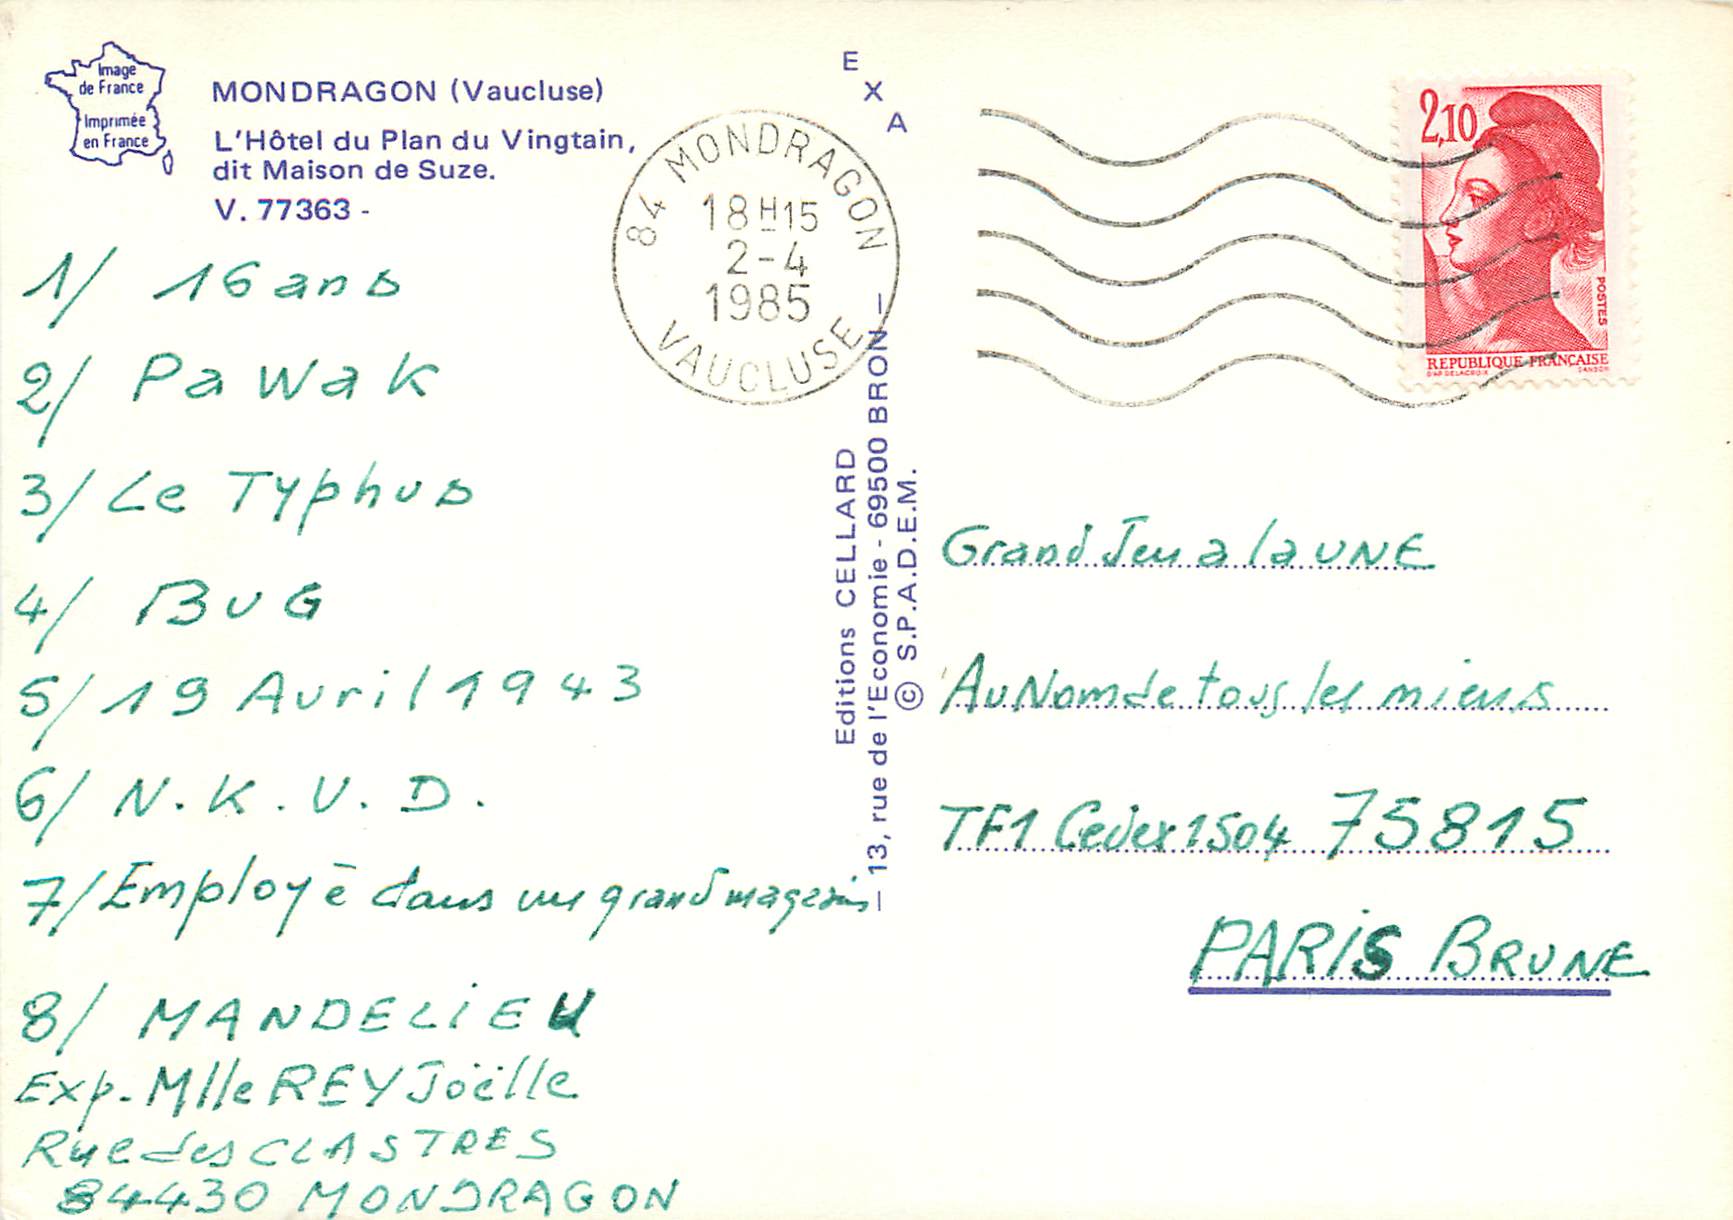 Image
de France
Imprimée
en France
MONDRAGON (Vaucluse)
L'Hôtel du Plan du Vingtain,
dit Maison de Suze.
V. 77363 -
1/ 16 ans
2/ Pawak
3/ Le Typhus
4/ BUG
5/ 19 Avril 1943
6/ N.K.V.D.
7/ Employé dans un grand magasin
8/ MANDELIEU
Exp. Mlle REY Joëlle
Rue des CLASTRES
84430 MONDRAGON
84 MONDRAGON
18H15
2-4
1985
VAUCLUSE
EXA
Editions CELLARD
— 13, rue de l'Economie - 69500 BRON —
© S.P.A.D.E.M.
2,10
POSTES
REPUBLIQUE FRANÇAISE
D'AP. DELACROIX GANDON
Grand Jeu a la UNE
Au Nom de tous les miens
TF1 Cedex 1504 75815
PARIS BRUNE